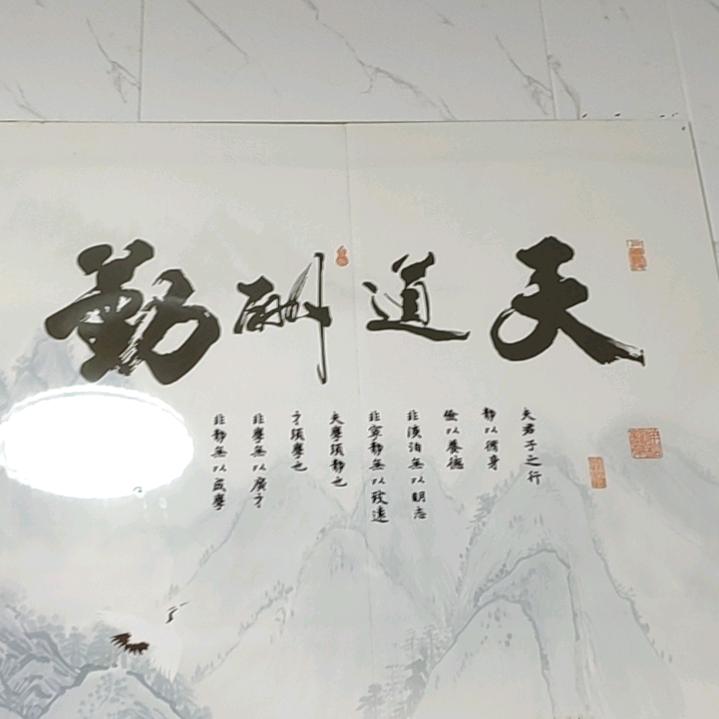 天道酬勤
夫君子之行
靜以修身
儉以養德
非淡泊無以明志
非寧靜無以致遠
夫學須靜也
才須學也
非學無以廣才
非靜無以成學